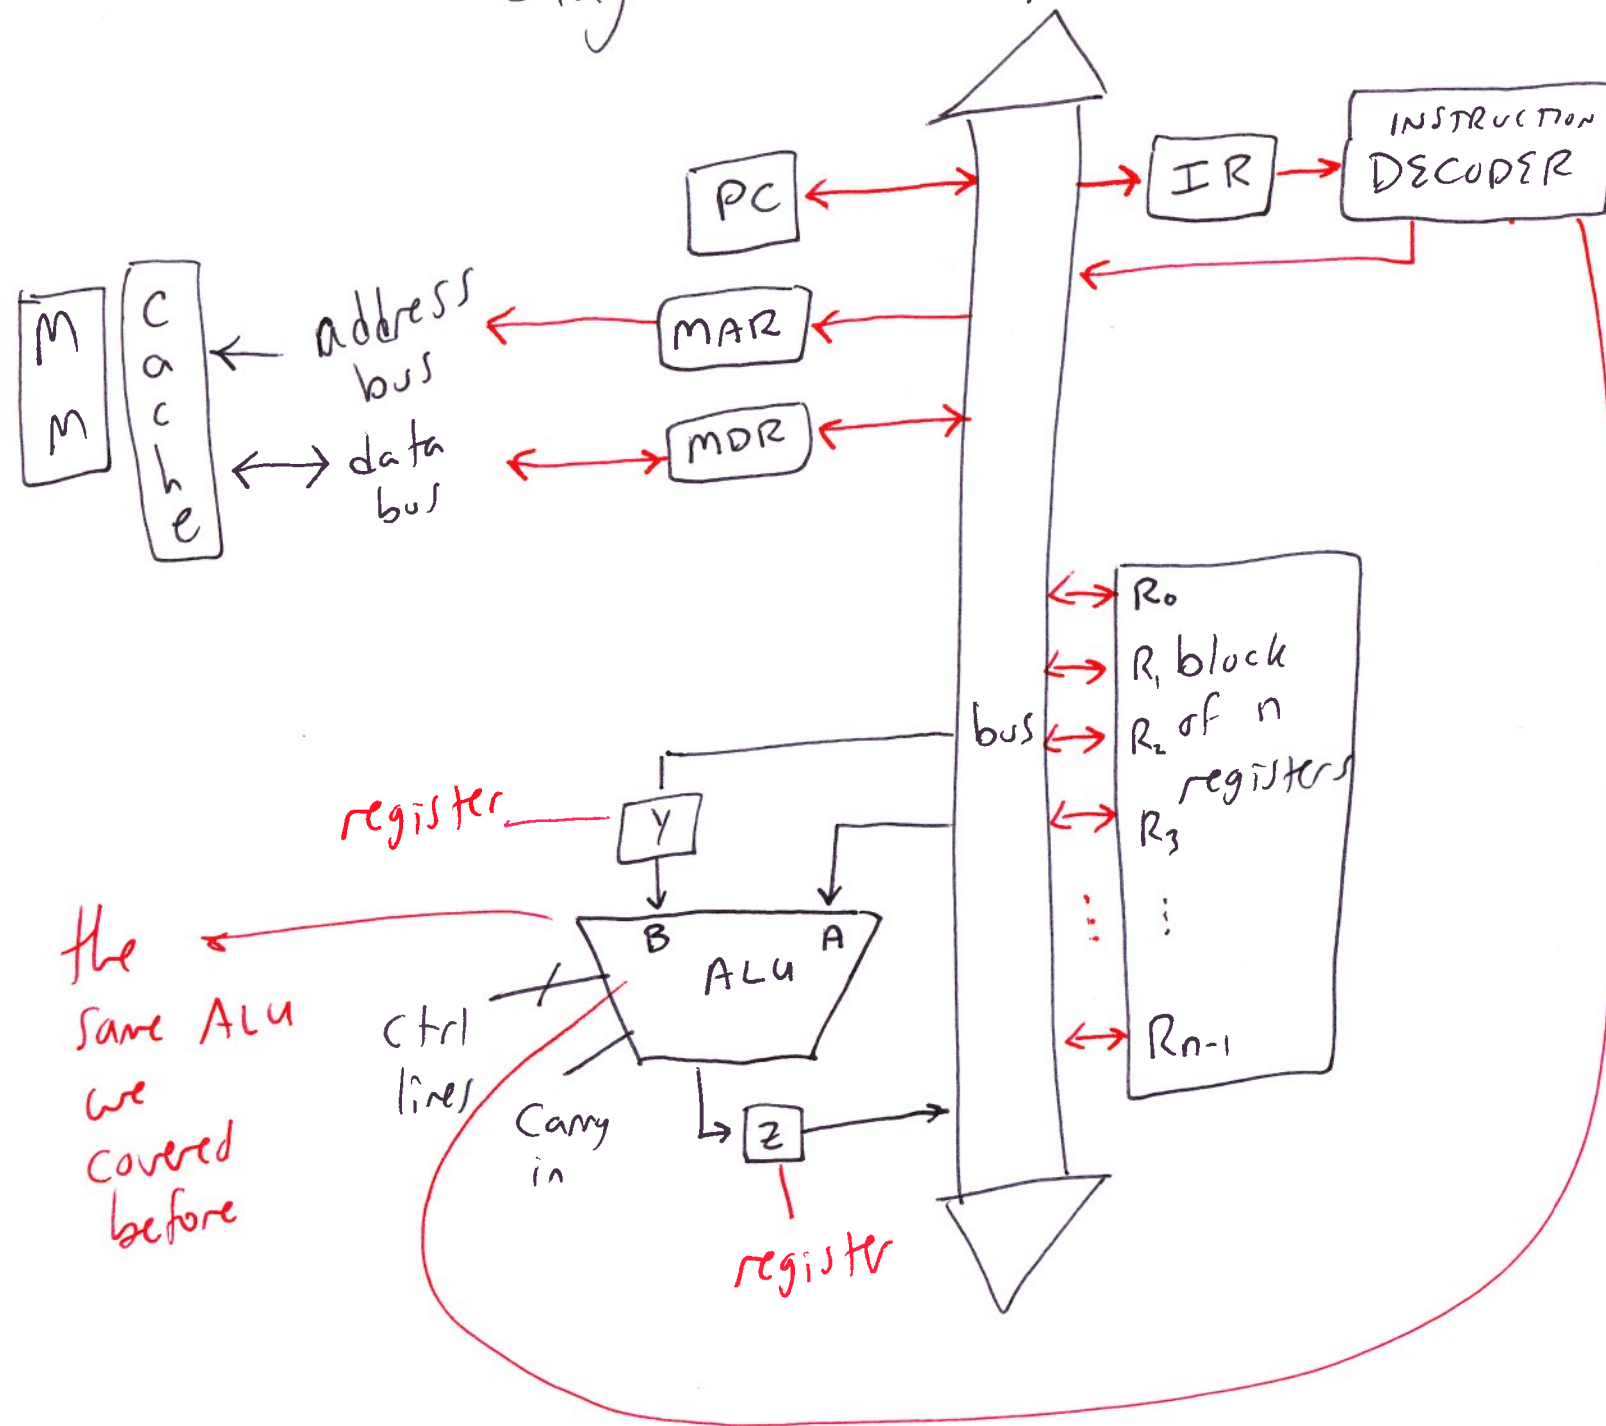 INSTRUCTION
DECODER
IR
PC
MAR
MDR
address
bus
data
bus
MM
Cache
R0
R1 block
R2 of n
registers
R3
...
...
Rn-1
bus
register
Y
B
A
ALU
the
same ALU
we
covered
before
Ctrl
lines
Carry
in
Z
register